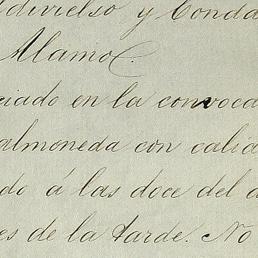 ldivielso y Conda
Alamo.
ciado en la convoca
almoneda con calid
do á las doce del d
es de la tarde. No